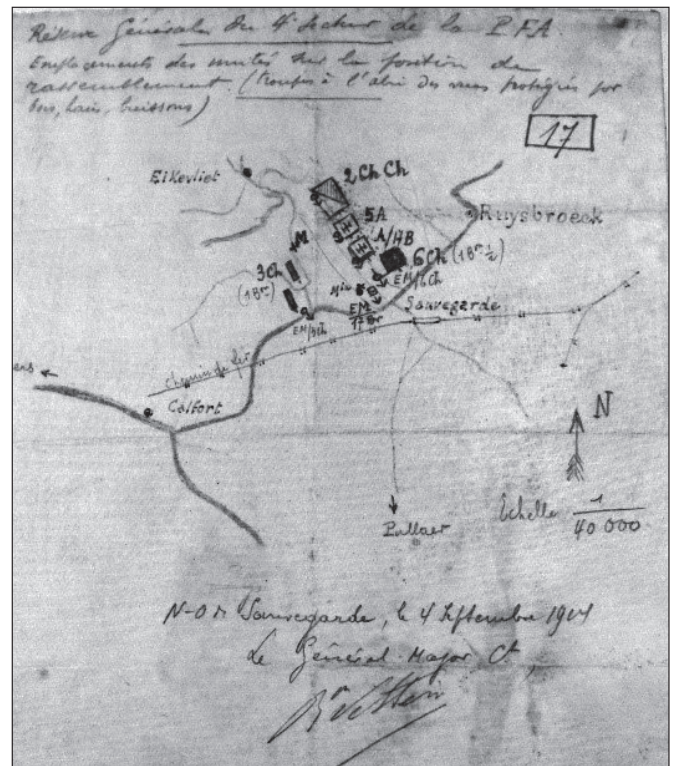 Réserve Générale du 4e Secteur de la P.F.A.
Emplacements des unités sur la position de
rassemblement. (troupes à l'abri des vues protégées par
bois, haies, buissons)
17
Eikevliet
2 Ch Ch
5A
Ruysbroeck
M
A/AB
3 Ch
6 Ch (18r 1/2)
(18r)
EM/6Ch
Mi
EM
17 Br
Sauvegarde
EM/3Ch
ers
chemin de fer
Calfort
N
Echelle 1
40 000
Pullaer
N-O de Sauvegarde, le 4 Septembre 1914
Le Général-Major Ct